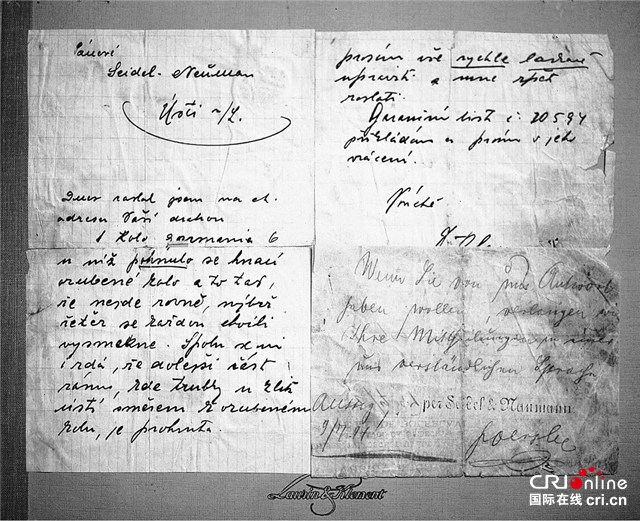 Pánové
Seidel - Neuman
Ústí n/L.
Dnes zaslal jsem na ct.
adresu Vaší drahou
1 kolo germania 6
u níž pohnulo se hnací
ozubené kolo a to tak,
že nejde rovně, nýbrž
řetěz se každou chvíli
vysmekne. Spolu se mi
i zdá, že dolejší část
rámu, kde trubky u klik
ústí směrem k ozubenému
kolu, je prohnuta.
prosím vše rychle laskavě
upraviti a mně zpět
zaslati.
Garanční list č. 20594
přikládám a prosím o jeho
vrácení.
V úctě
Wenn Sie von uns Antwort
haben wollen, verlangen wir
Ihre Mittheilung in einer
uns verständlichen Sprache
Aussig
per Seidel & Naumann
Laurin & Klement
CRI online
国际在线 cri.cn